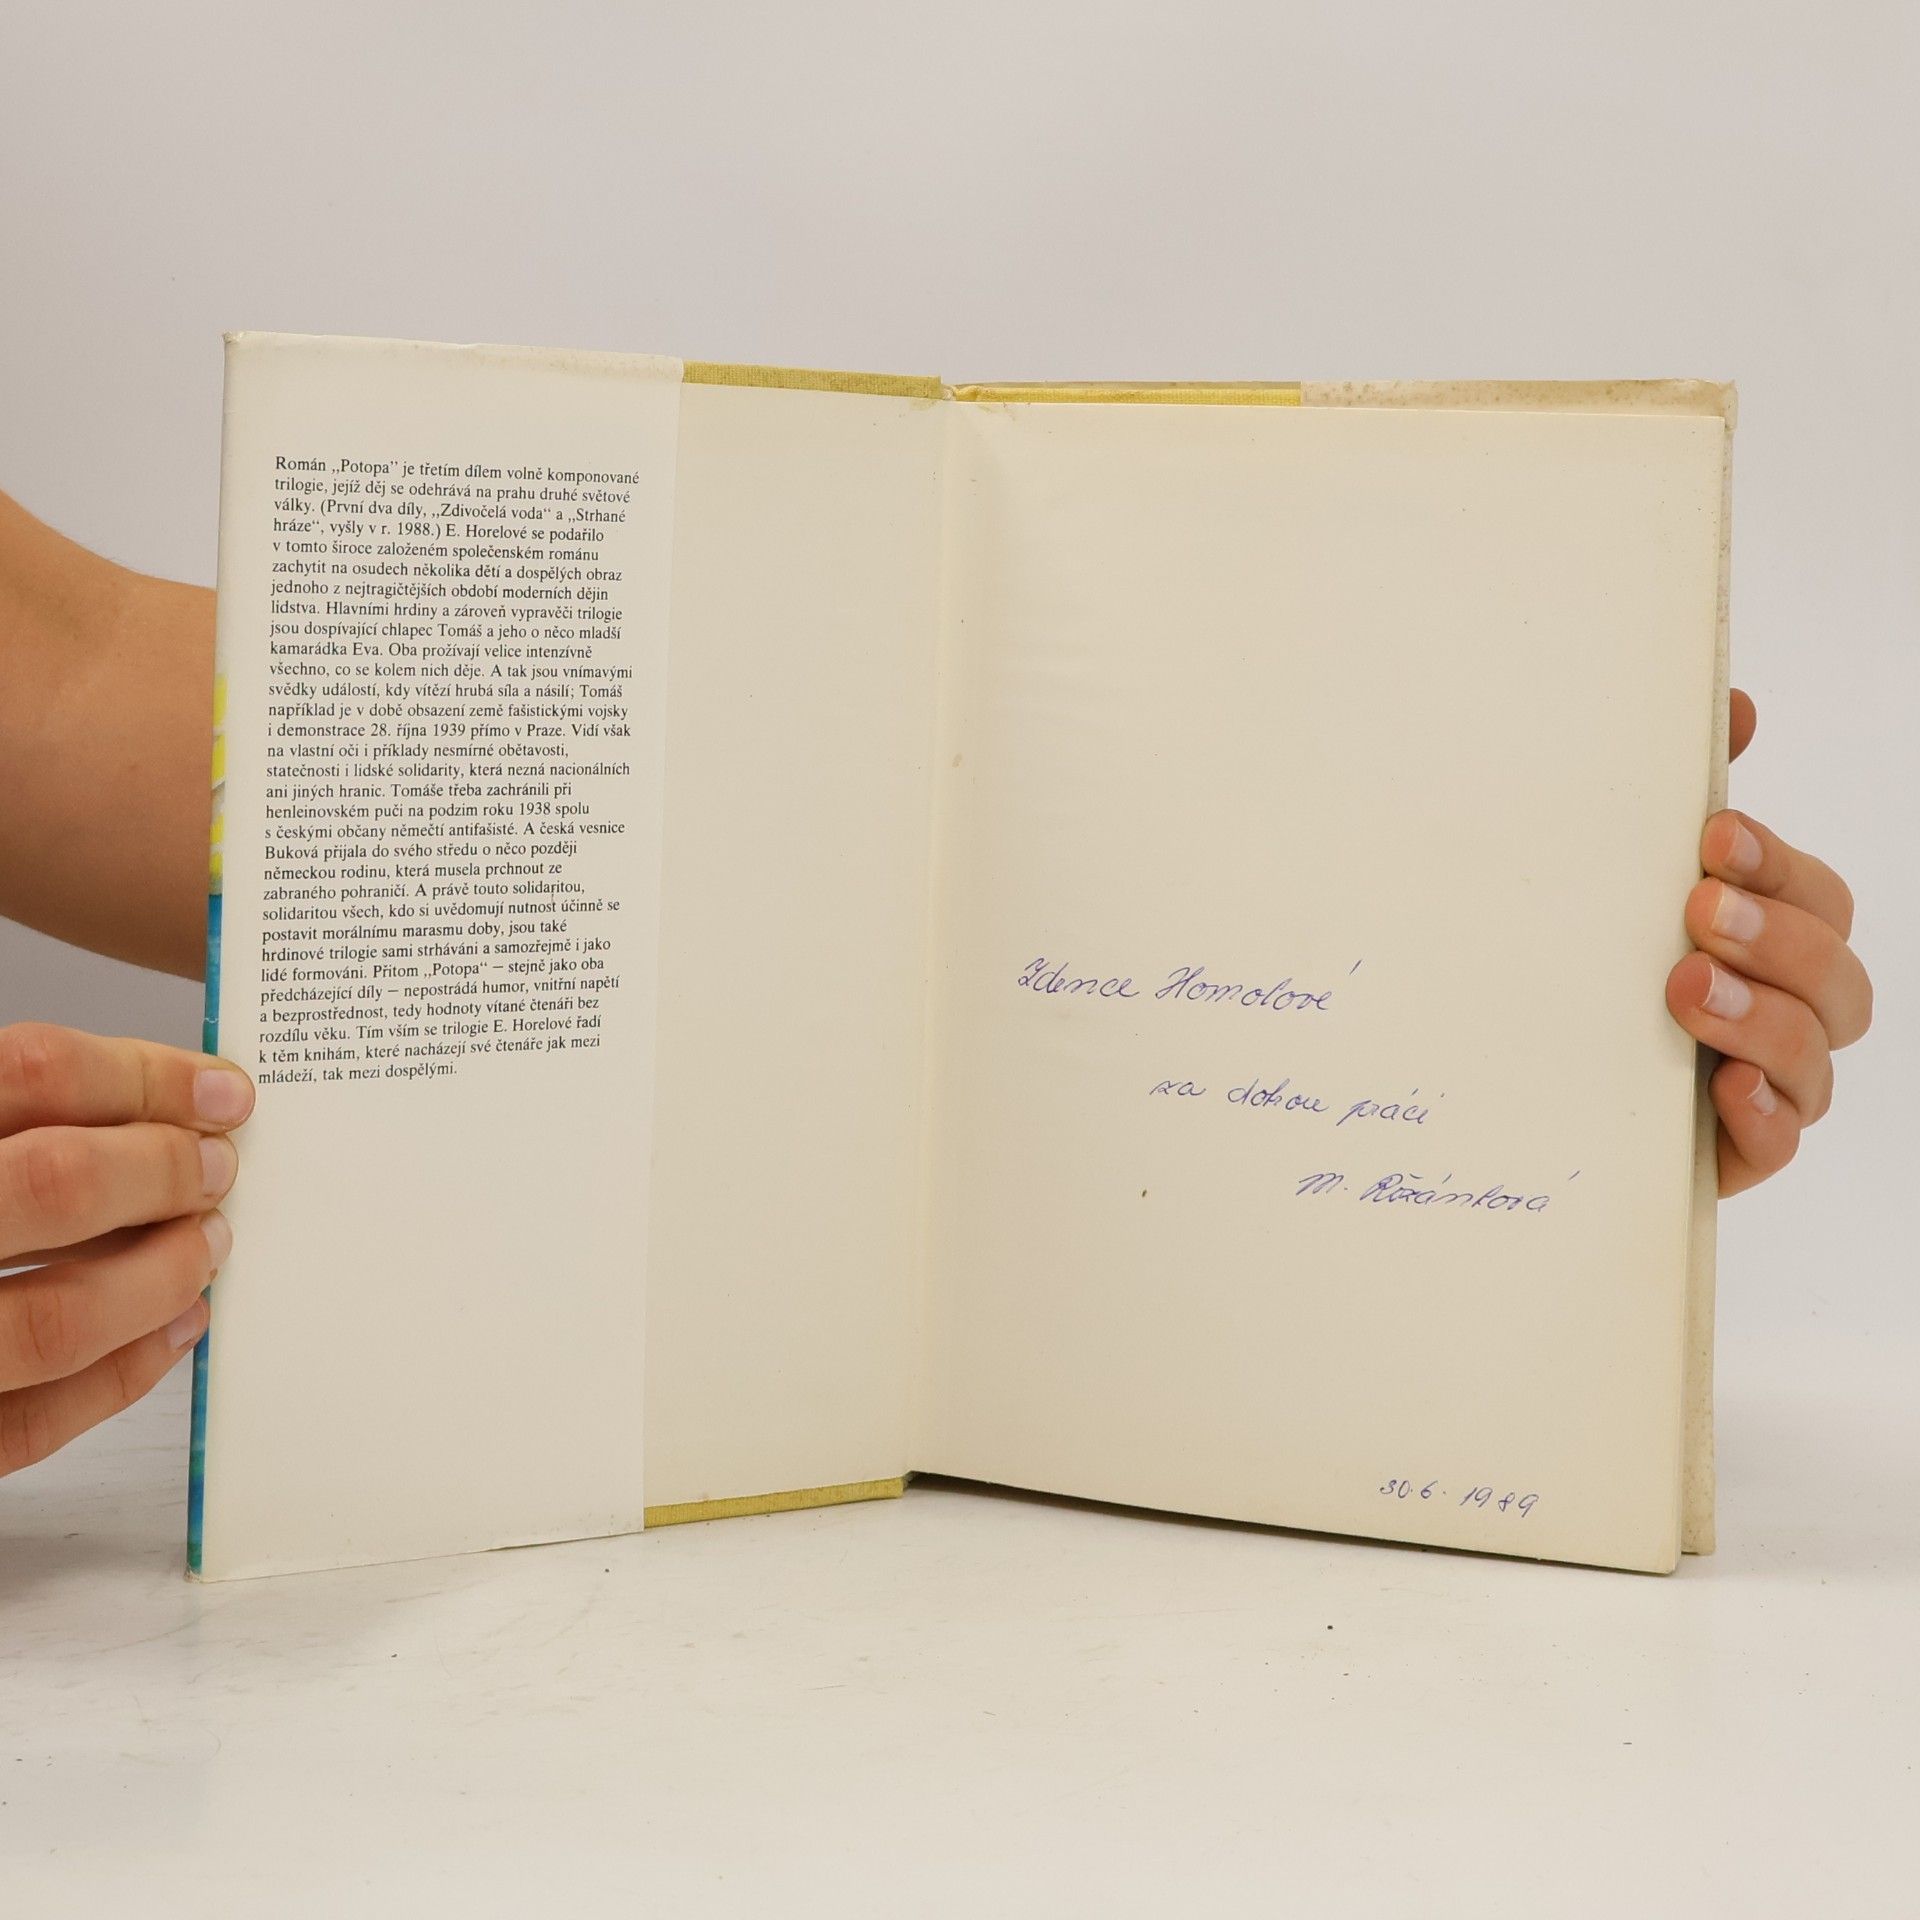 Román ,,Potopa" je třetím dílem volně komponované
trilogie, jejíž děj se odehrává na prahu druhé světové
války. (První dva díly, ,,Zdivočelá voda" a ,,Strhané
hráze", vyšly v r. 1988.) E. Horelové se podařilo
v tomto široce založeném společenském románu
zachytit na osudech několika dětí a dospělých obraz
jednoho z nejtragičtějších období moderních dějin
lidstva. Hlavními hrdiny a zároveň vypravěči trilogie
jsou dospívající chlapec Tomáš a jeho o něco mladší
kamarádka Eva. Oba prožívají velice intenzívně
všechno, co se kolem nich děje. A tak jsou vnímavými
svědky událostí, kdy vítězí hrubá síla a násilí; Tomáš
například je v době obsazení země fašistickými vojsky
i demonstrace 28. října 1939 přímo v Praze. Vidí však
na vlastní oči i příklady nesmírné obětavosti,
statečnosti i lidské solidarity, která nezná nacionálních
ani jiných hranic. Tomáše třeba zachránili při
henleinovském puči na podzim roku 1938 spolu
s českými občany němečtí antifašisté. A česká vesnice
Buková přijala do svého středu o něco později
německou rodinu, která musela prchnout ze
zabraného pohraničí. A právě touto solidaritou,
solidaritou všech, kdo si uvědomují nutnost účinně se
postavit morálnímu marasmu doby, jsou také
hrdinové trilogie sami strháváni a samozřejmě i jako
lidé formováni. Přitom ,,Potopa" — stejně jako oba
předcházející díly — nepostrádá humor, vnitřní napětí
a bezprostřednost, tedy hodnoty vítané čtenáři bez
rozdílu věku. Tím vším se trilogie E. Horelové řadí
k těm knihám, které nacházejí své čtenáře jak mezi
mládeží, tak mezi dospělými.
Zdence Homolové
za dobrou práci
M. Růžánková
30.6. 1989